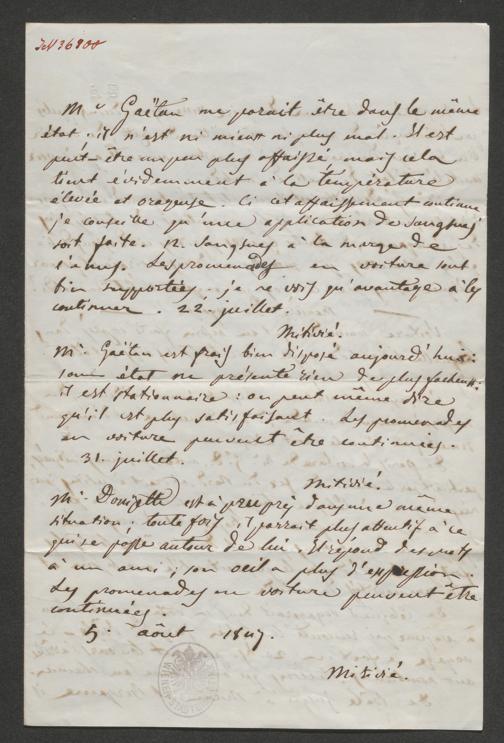 IN 36908
Mr Gaëtan me parait être dans le même
état, il n'est ni mieux ni plus mal. Il est
peut-être un peu plus affaissé mais cela
tient évidemment à la température
élevée et orageuse. Si cet affaissement continue
je conseille qu'une application de sangsues
soit faite. 12 sangsues à la marge de
l'anus. Les promenades en voiture sont
bien supportées, je ne vois qu'avantage à les
continuer. 22. juillet.
Mitivié.
Mr Gaëtan est frais bien disposé aujourd'hui:
son état ne présente rien de plus facheux.
il est stationnaire: on peut même dire
qu'il est plus satisfaisant. Les promenades
en voiture peuvent être continuées.
31. juillet.
Mitivié.
Mr Donizetti est à peu près dans une même
situation; toute fois, il parrait plus attentif à ce
qui se passe autour de lui. Il répond des mots
à un ami; son oeil a plus d'expression
Les promenades en voiture peuvent être
continuées.
5. août 1847.
Mitivié.